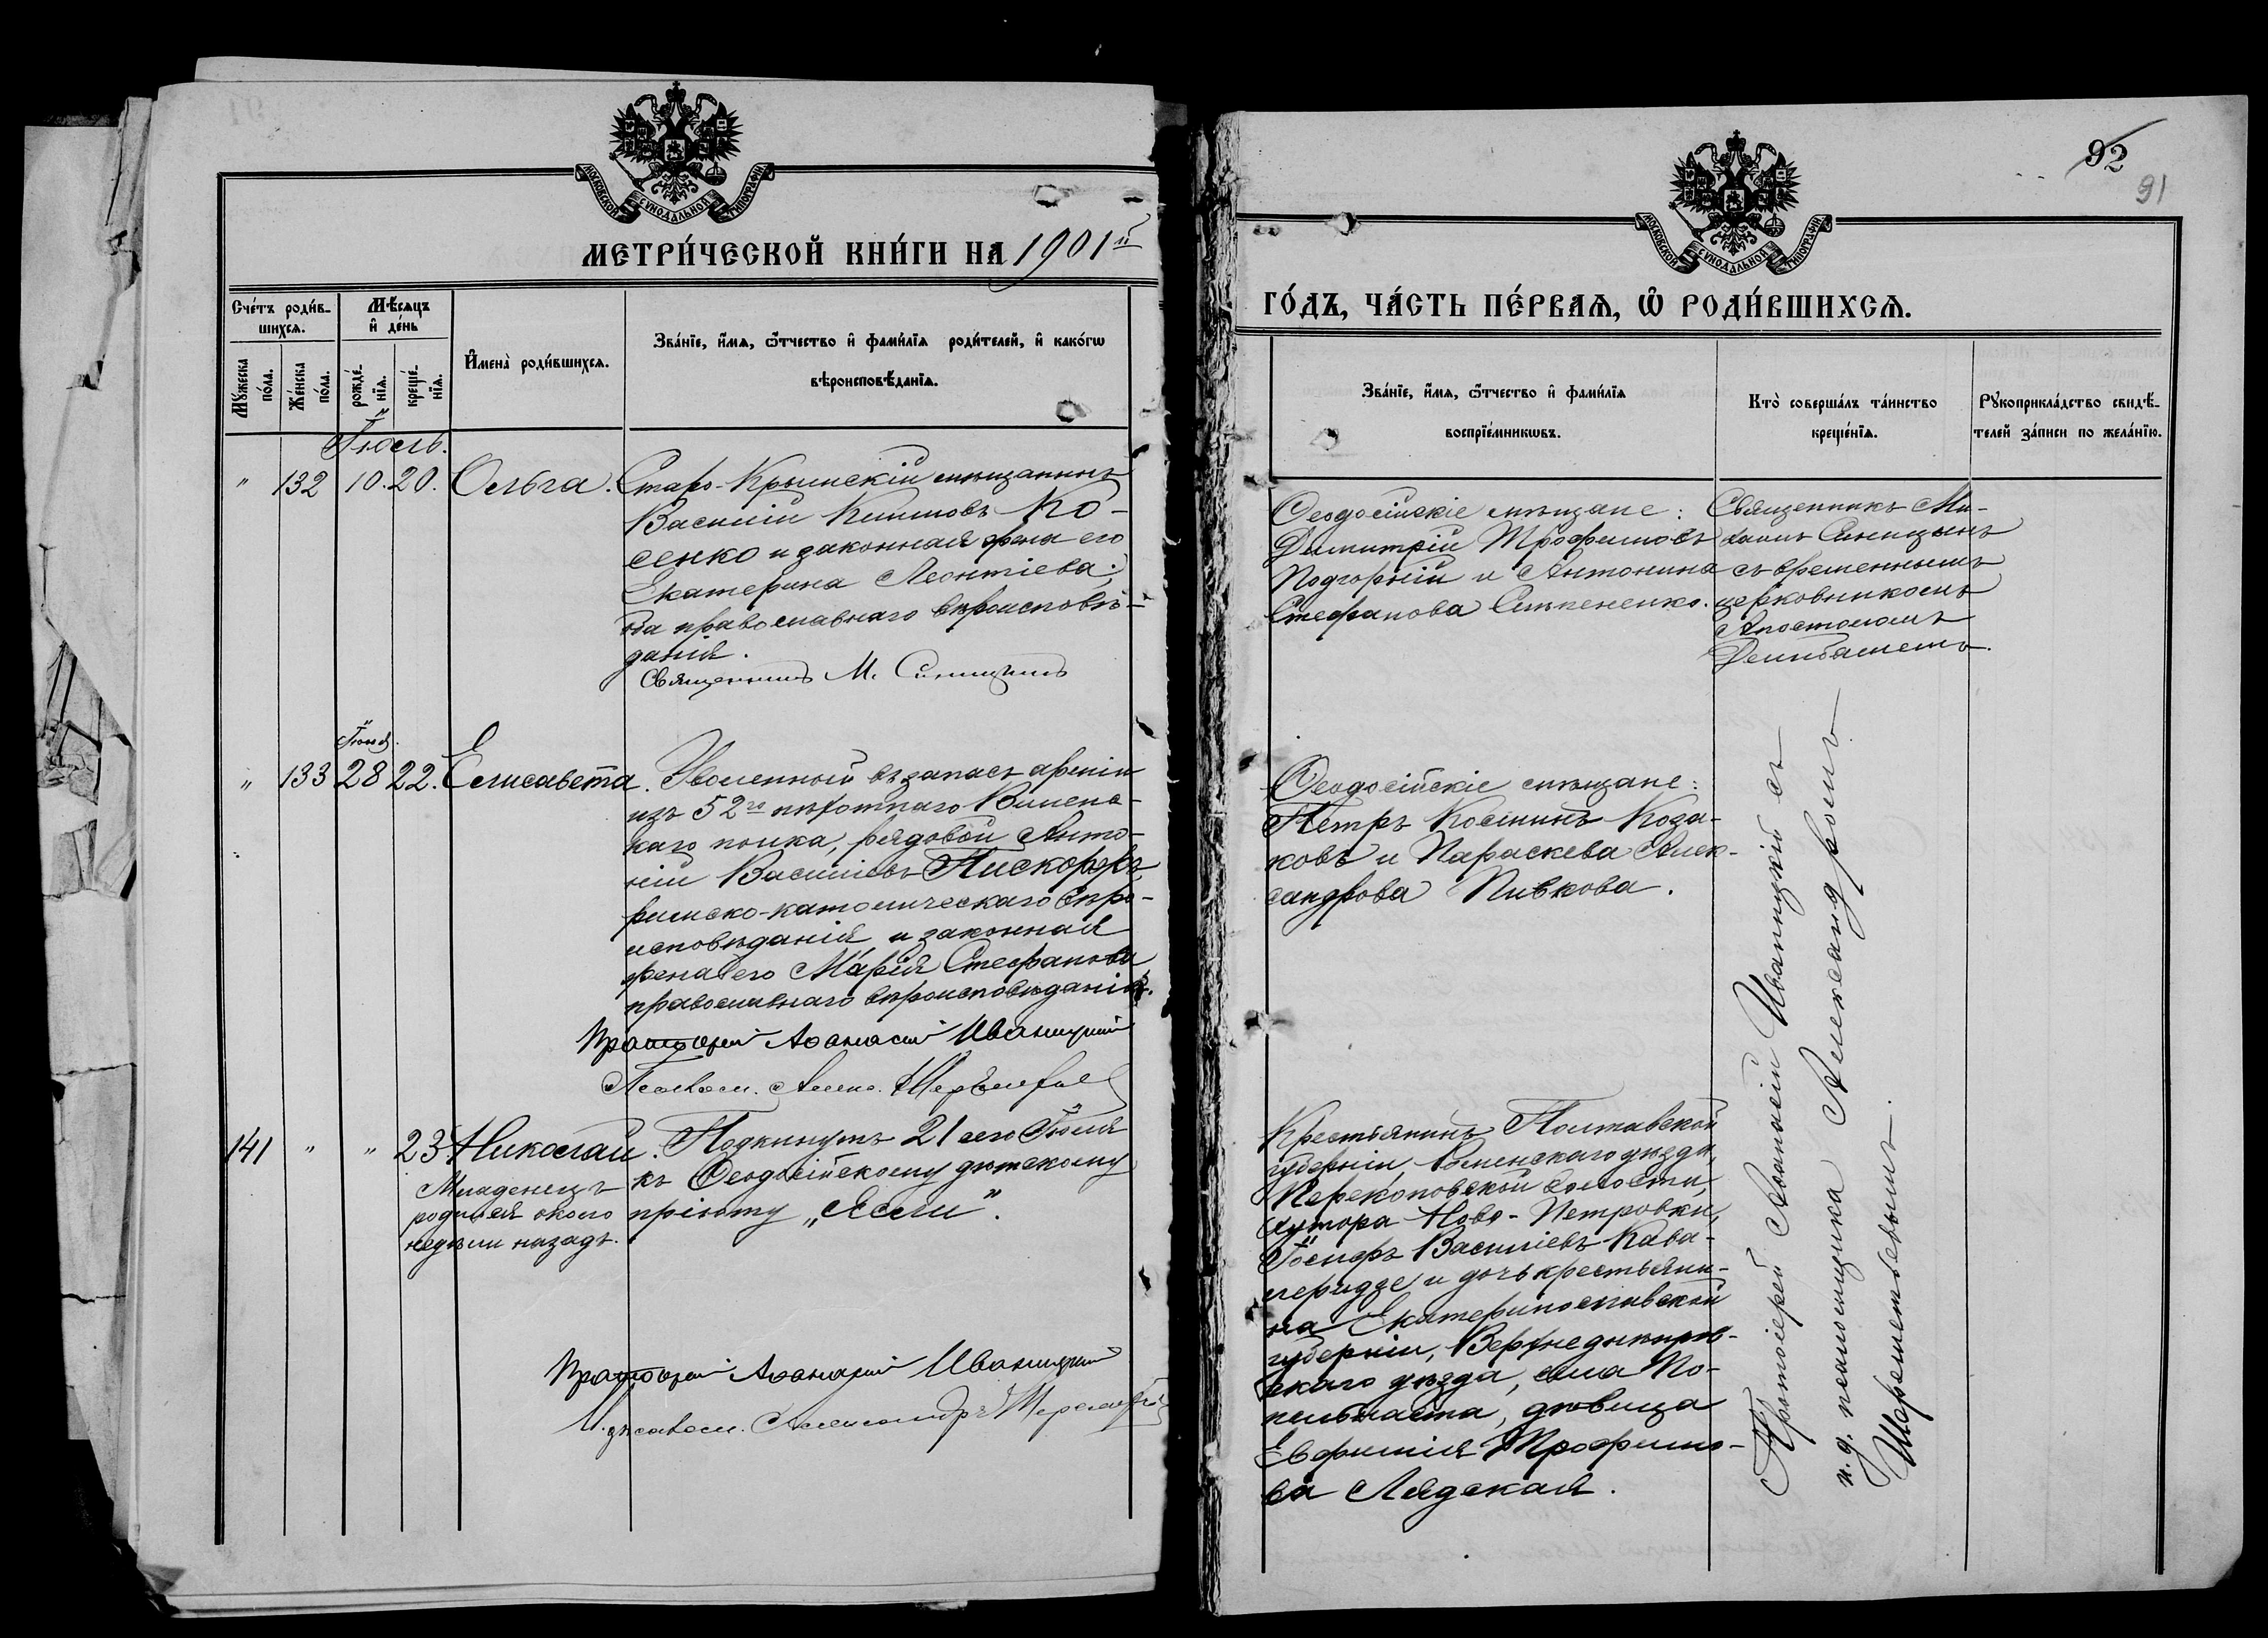 МОСКОВСКОЙ СУНОДАЛЬНОЙ ТИПОГРАФІИ
МЕТРИ́ЧЕСКОЙ КНИ́ГИ НА 1901й
Сче́тъ роди́в-
шихсѧ.
Мѣ́сѧцъ
и҆ де́нь
Мꙋ́жеска
по́ла.
Же́нска
по́ла.
рожде́-
нїѧ.
креще́-
нїѧ.
И҆мена̀ роди́вшихсѧ.
Зва́нїе, и҆́мѧ, ѻ҆́тчество и҆ фами́лїѧ роди́телей, и҆ како́гѡ
вѣроисповѣ́данїѧ.
Іюль.
" 132 10. 20. Ольга.
Старо-Крымскій мѣщанинъ
Василій Климовъ Ко-
сенко и законная жена его
Екатерина Леонтіева;
оба православнаго вѣроисповѣ-
данія.
Священникъ М. Синицынъ
Іюня
" 133 28 22. Елисавета.
Уволенный въ запасъ арміи
изъ 52го пѣхотнаго Виленс-
каго полка, рядовой Анто-
ній Василіевъ Пискоржъ,
римско-католическаго вѣро-
исповѣданія и законная
жена его Марія Стефанова
православнаго вѣроисповѣданія.
Протоіерей Аѳанасій Иваницкій
Псаломщ. Алекс. Шереметьев
141 " " 23 Николай.
Младенецъ
родился около
недѣли назадъ.
Подкинутъ 21 сего Іюля
къ Ѳеодосійскому дѣтскому
пріюту „Ясли".
Протоіерей Аѳанасій Иваницкій
Александръ Шереметьев
92
91
МОСКОВСКОЙ СУНОДАЛЬНОЙ ТИПОГРАФІИ
ГО́ДЪ, ЧА́СТЬ ПЕ́РВАѦ, Ѡ҆ РОДИ́ВШИХСѦ.
Зва́нїе, и҆́мѧ, ѻ҆́тчество и҆ фами́лїѧ
воспрїе́мникѡвъ.
Кто̀ соверша́лъ та́инство
креще́нїѧ.
Рꙋкоприкла́дство свидѣ́-
телей за́писи по жела́нїю.
Ѳеодосійскіе мѣщане:
Димитрій Трофимовъ
Подгорній и Антонина
Стефанова Степененко.
Священникъ Ми-
хаилъ Синицынъ
съ временнымъ
церковникомъ
Апостоломъ
Ѳеодосійскіе мѣщане:
Петръ Косминъ Коза-
ковъ и Параскева Алек-
сандрова Пивкова.
Крестьянинъ Полтавской
губерніи, Роменскаго уѣзда,
Перекоповской волости,
хутора Ново-Петровки,
Іосифъ Василіевъ Кава-
леридзе и дочь крестьяни-
на Екатеринославской
губерніи, Верхнеднѣпров-
скаго уѣзда, села По-
пельнаста, дѣвица
Евфимія Трофимо-
ва Лядская.
Протоіерей Аѳанасій Иваницкій съ
и. д. псаломщика Александромъ
Шереметьевымъ.